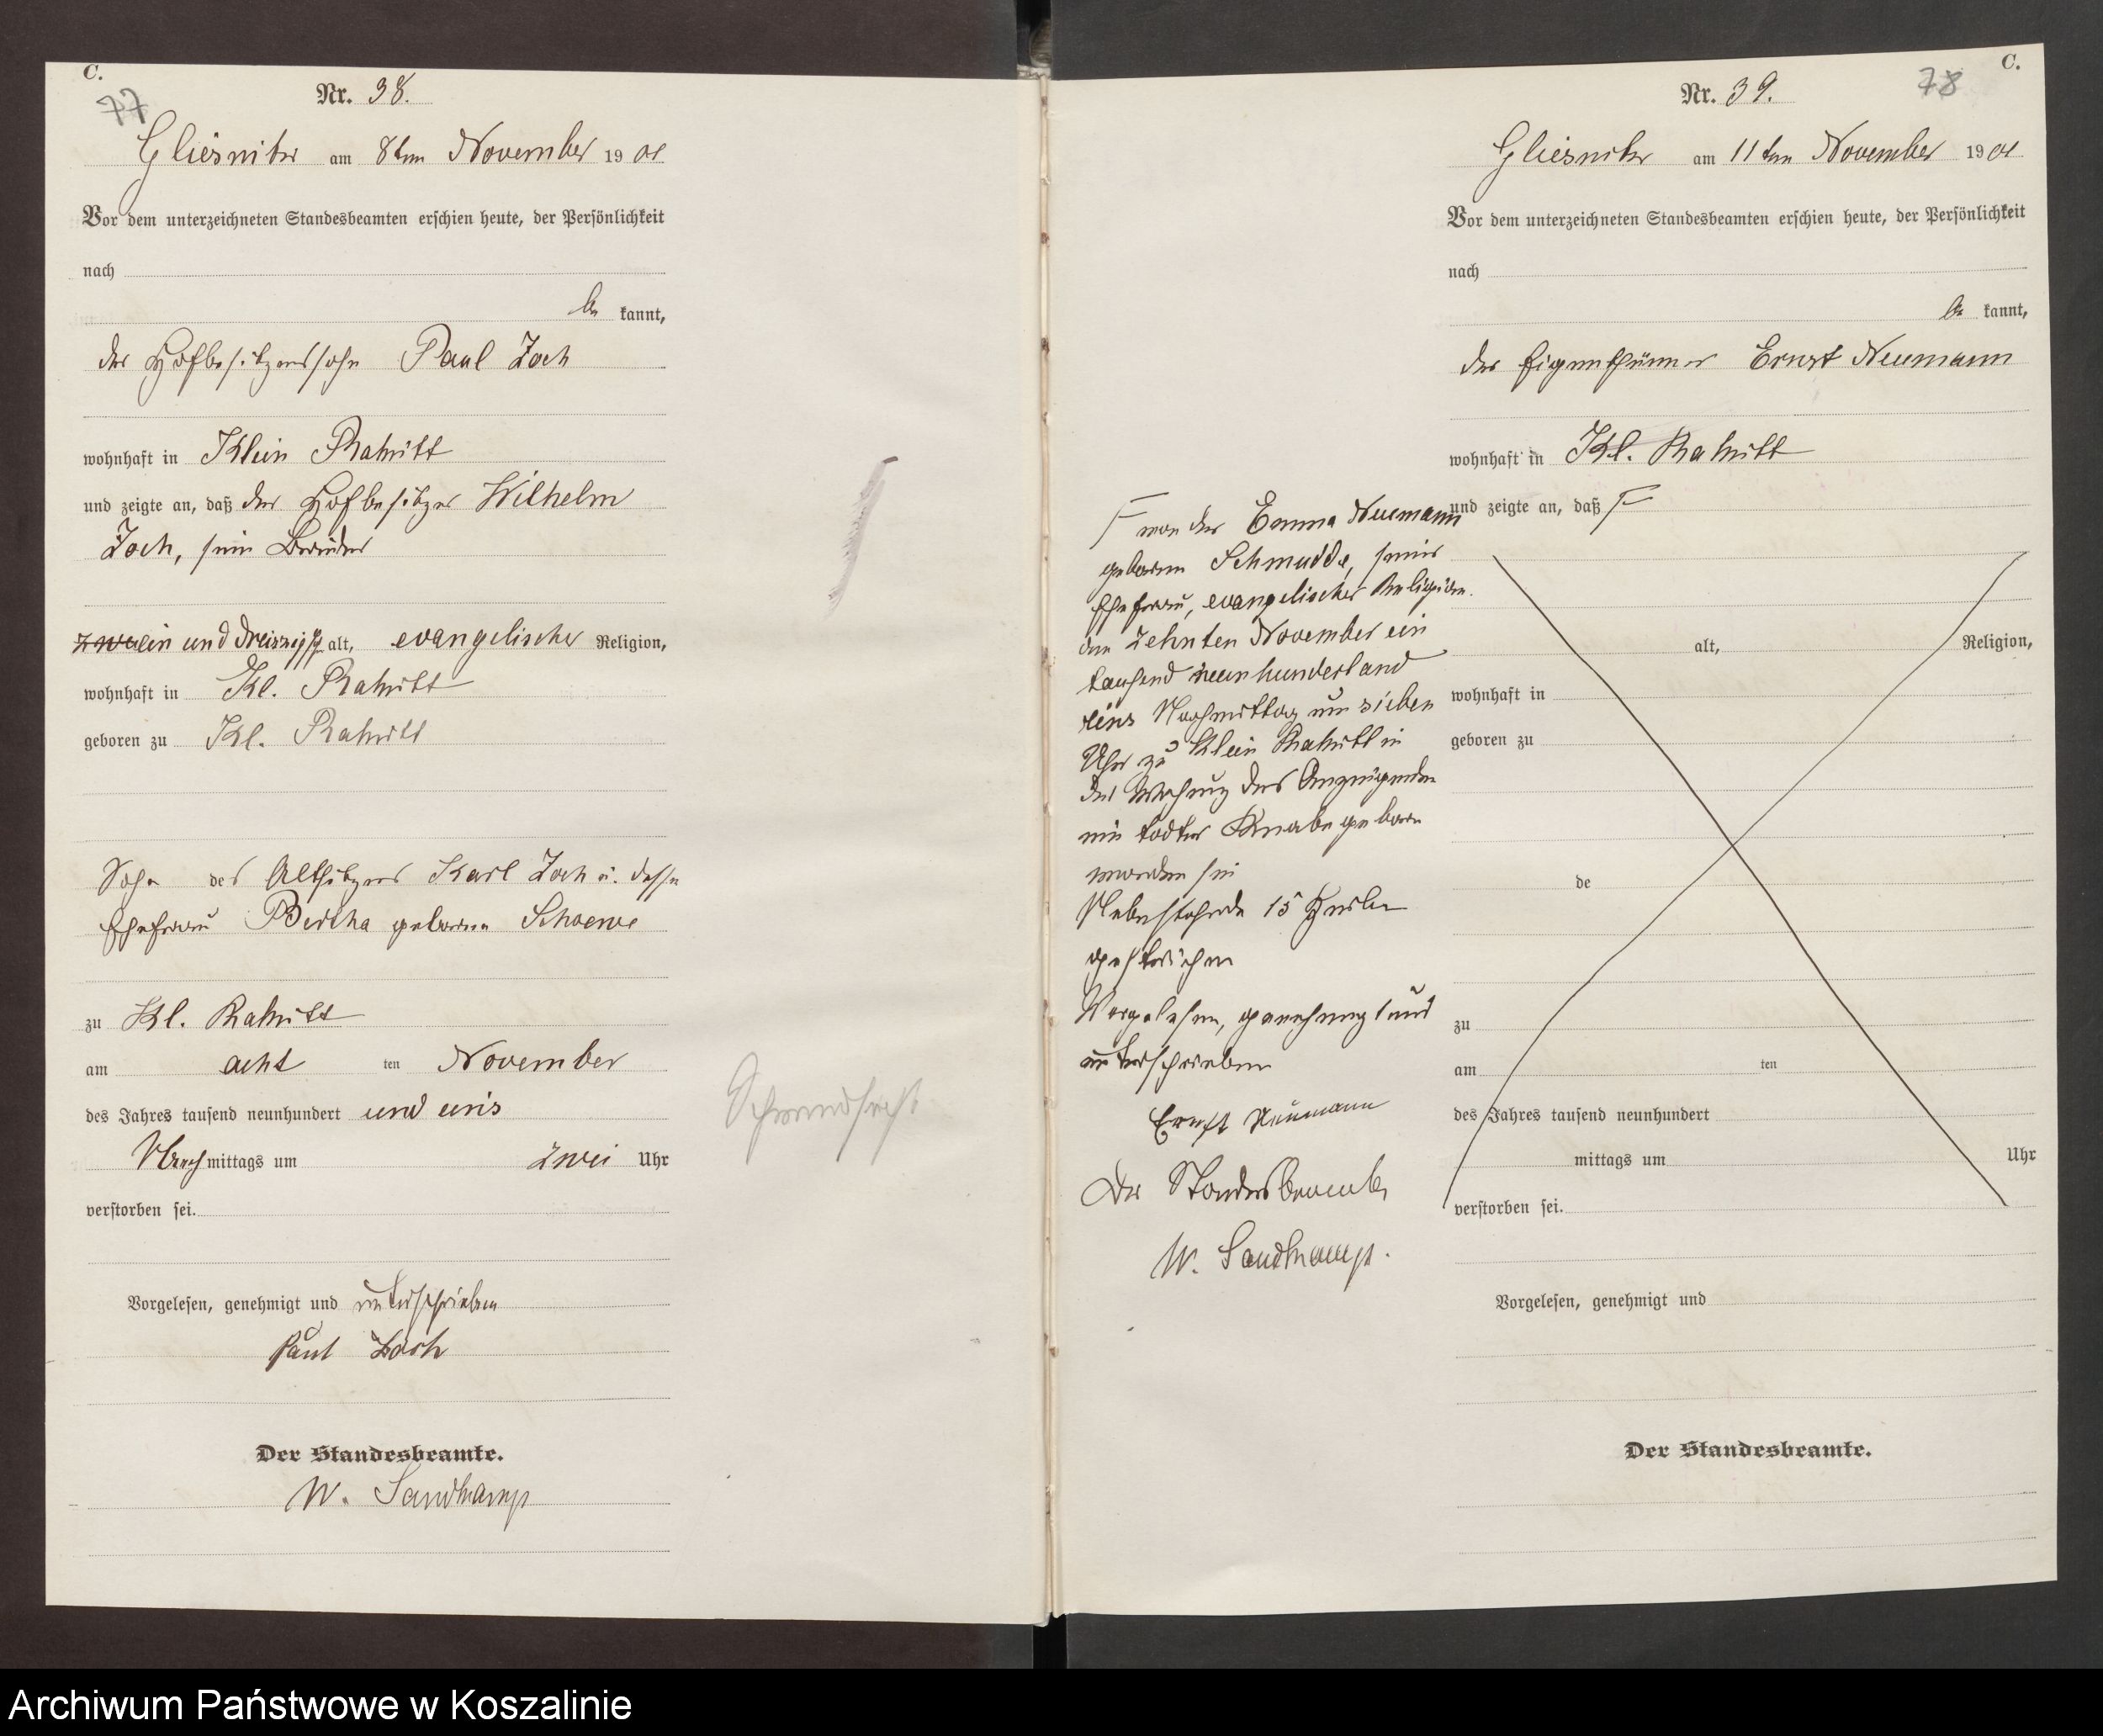 C.
77
Nr. 38.
Gliesnitz am 8ten November 1901
Vor dem unterzeichneten Standesbeamten erschien heute, der Persönlichkeit
nach
be kannt,
der Hofbesitzerssohn Paul Zoch
wohnhaft in Klein Rakitt
und zeigte an, daß der Hofbesitzer Wilhelm
Zoch, sein Bruder
ein und dreiszig J. alt, evangelischer Religion,
wohnhaft in Kl. Rakitt
geboren zu Kl. Rakitt
Sohn des Altsitzers Karl Zoch u. dessen
Ehefrau Bertha geborene
zu Kl. Rakitt
am acht ten November
des Jahres tausend neunhundert und eins
Nach mittags um zwei Uhr
verstorben sei.
Vorgelesen, genehmigt und unterschrieben
Paul Zoch
Der Standesbeamte.
W. Sandkamp
Schwindsucht
C.
78
Nr. 39.
Gliesnitz am 11ten November 1901
Vor dem unterzeichneten Standesbeamten erschien heute, der Persönlichkeit
nach
be kannt,
der Eigenthümer Ernst Neumann
wohnhaft in Kl. Rakitt
und zeigte an, daß
von der Emma Neumann
geborene Schmudde, seiner
Ehefrau, evangelischer Religion
den zehnten November ein
tausend neunhundert und
eins Nachmittag um sieben
Uhr zu Klein Rakitt in
der Wohnung des Anzeigenden
ein todter Knabe geboren
worden sei
Nebenstehende 15 Zeilen
gestrichen
Vorgelesen, genehmigt und
unterschrieben
Ernst Neumann
Der Standesbeamte
W. Sandkamp.
alt, Religion,
wohnhaft in
geboren zu
de
zu
am ten
des Jahres tausend neunhundert
mittags um Uhr
verstorben sei.
Vorgelesen, genehmigt und
Der Standesbeamte.
Archiwum Państwowe w Koszalinie